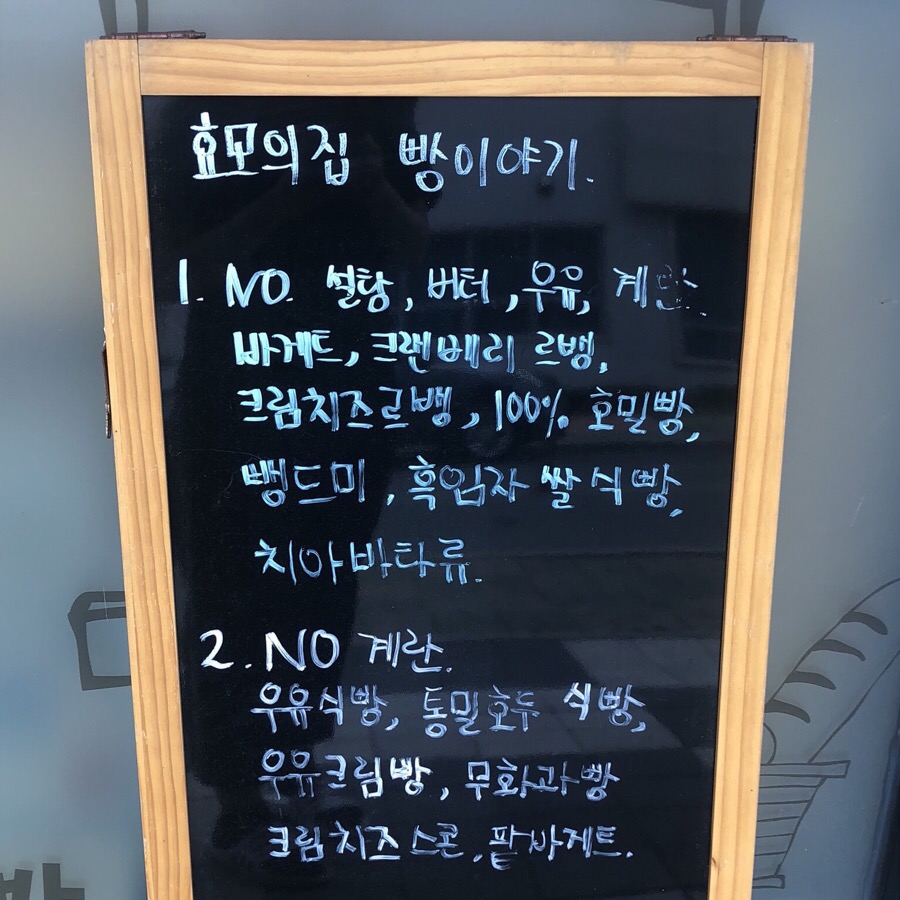 효모의집 빵이야기.
1. NO. 설탕, 버터, 우유, 계란.
바게트, 크랜베리 르뱅,
크림치즈르뱅, 100% 호밀빵,
뺑드미, 흑임자 쌀식빵,
치아바타류.
2. NO 계란.
우유식빵, 통밀호두 식빵,
우유크림빵, 무화과빵
크림치즈스콘, 팥바게트.